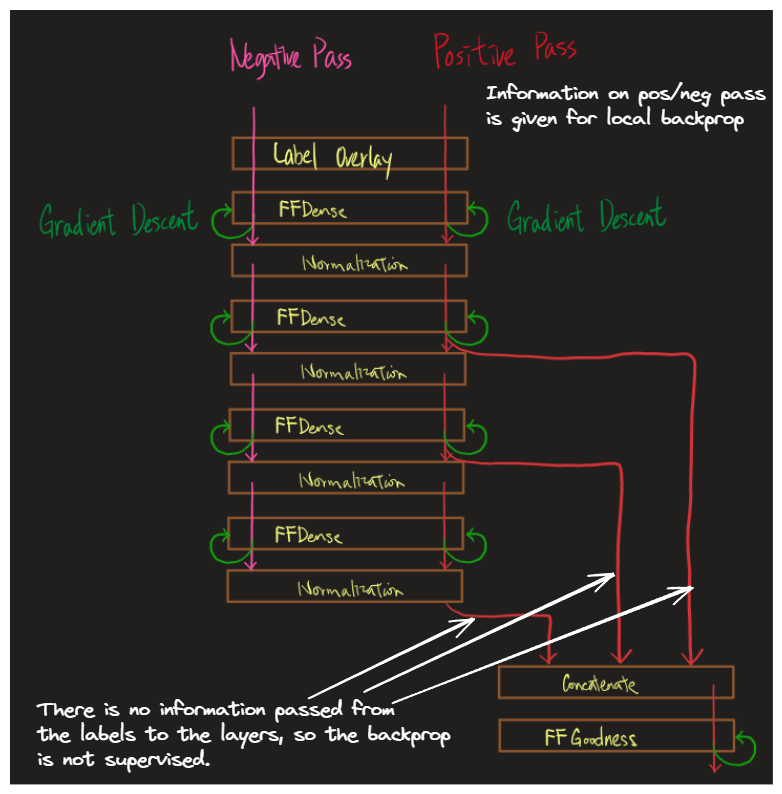 Negative Pass
Positive Pass
Information on pos/neg pass
is given for local backprop
Label Overlay
Gradient Descent
FFDense
Gradient Descent
Normalization
FFDense
Normalization
FFDense
Normalization
FFDense
Normalization
Concatenate
FF Goodness
There is no information passed from
the labels to the layers, so the backprop
is not supervised.